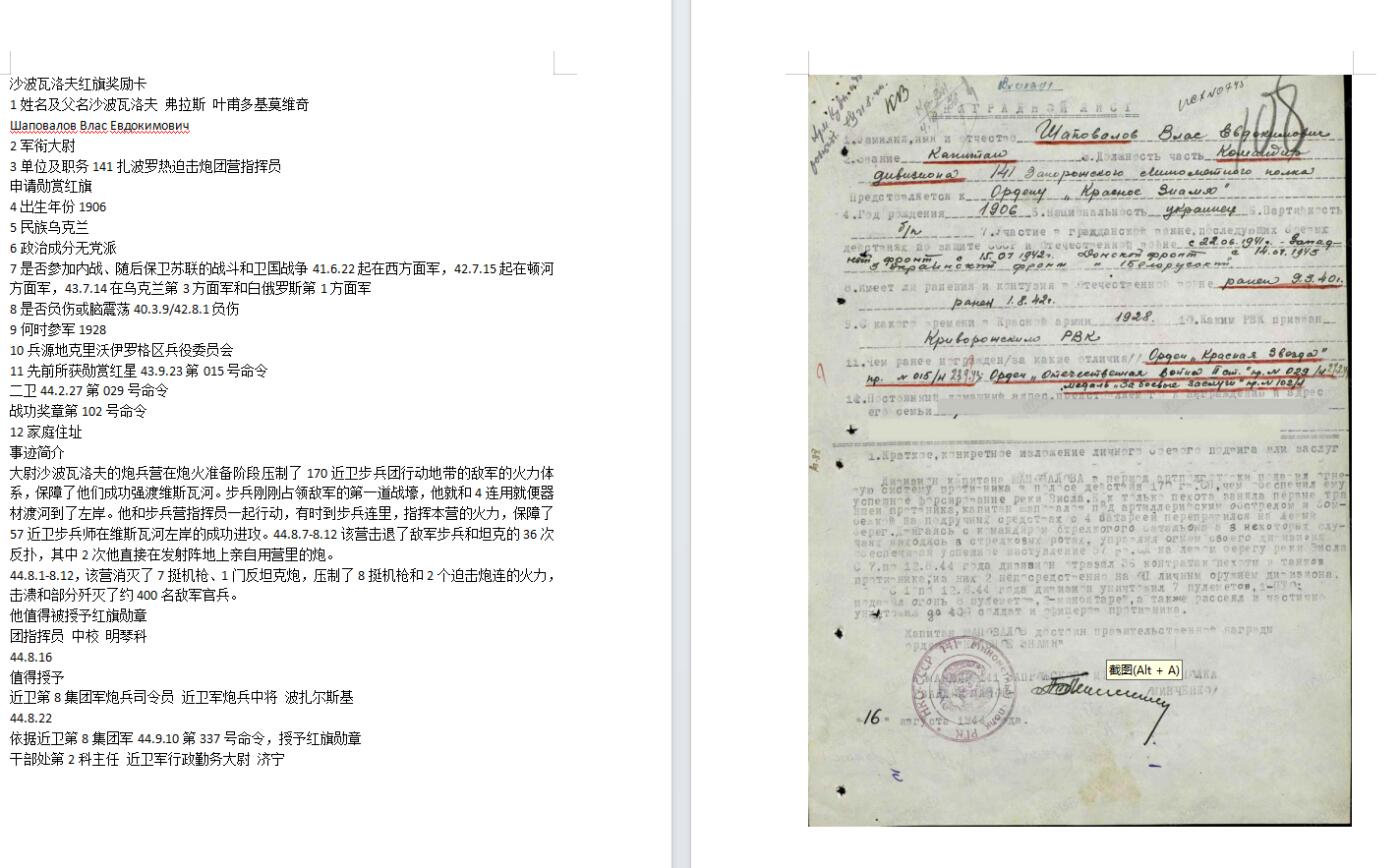 沙波瓦洛夫红旗奖励卡
1 姓名及父名沙波瓦洛夫 弗拉斯 叶甫多基莫维奇
Шаповалов Влас Евдокимович
2 军衔大尉
3 单位及职务 141 扎波罗热迫击炮团营指挥员
申请勋赏红旗
4 出生年份 1906
5 民族乌克兰
6 政治成分无党派
7 是否参加内战、随后保卫苏联的战斗和卫国战争 41.6.22 起在西方面军，42.7.15 起在顿河
方面军，43.7.14 在乌克兰第 3 方面军和白俄罗斯第 1 方面军
8 是否负伤或脑震荡 40.3.9/42.8.1 负伤
9 何时参军 1928
10 兵源地克里沃伊罗格区兵役委员会
11 先前所获勋赏红星 43.9.23 第 015 号命令
二卫 44.2.27 第 029 号命令
战功奖章第 102 号命令
12 家庭住址
事迹简介
大尉沙波瓦洛夫的炮兵营在炮火准备阶段压制了 170 近卫步兵团行动地带的敌军的火力体
系，保障了他们成功强渡维斯瓦河。步兵刚刚占领敌军的第一道战壕，他就和 4 连用就便器
材渡河到了左岸。他和步兵营指挥员一起行动，有时到步兵连里，指挥本营的火力，保障了
57 近卫步兵师在维斯瓦河左岸的成功进攻。44.8.7-8.12 该营击退了敌军步兵和坦克的 36 次
反扑，其中 2 次他直接在发射阵地上亲自用营里的炮。
44.8.1-8.12，该营消灭了 7 挺机枪、1 门反坦克炮，压制了 8 挺机枪和 2 个迫击炮连的火力，
击溃和部分歼灭了约 400 名敌军官兵。
他值得被授予红旗勋章
团指挥员 中校 明琴科
44.8.16
值得授予
近卫第 8 集团军炮兵司令员 近卫军炮兵中将 波扎尔斯基
44.8.22
依据近卫第 8 集团军 44.9.10 第 337 号命令，授予红旗勋章
干部处第 2 科主任 近卫军行政勤务大尉 济宁
КВ
108
НАГРАДНОЙ ЛИСТ
1.Фамилия,имя и отчество Шаповалов Влас Евдокимович
2.Звание Капитан 3.Должность часть Командир
дивизиона 141 Запорожского минометного полка
Представляется к Ордену „Красное Знамя"
4.Год рождения 1906 5.Национальность украинец 6.Партийность
б/п 7.Участие в гражданской войне,последующих боевых
действиях по защите СССР и Отечественной войне с 22.06.1941г. - Запад-
ный фронт с 15.07 1942г. Донской фронт с 14.07.1943
3 Украинский фронт 1 Белорусский
8.Имеет ли ранения и контузия в Отечественной войне ранен 9.3.40г.
ранен 1.8.42г.
9.С какого времени в Красной армии 1928. 10.Каким РВК призван
Криворожским РВК
11.Чем ранее награжден/за какие отличия/ Орден „Красная Звезда"
пр. № 015/н Орден „Отечественная война II ст." пр. № 029/н
медаль „За боевые заслуги" пр. № 102/н
12.Постоянный домашний адрес представляемого к награждению и адрес
его семьи
1.Краткое,конкретное изложение личного боевого подвига или заслуг
Дивизион капитана ШАПОВАЛОВА в период артподготовки подавил огне-
вую систему противника в полосе действия 170 чем обеспечил ему
успешное форсирование реки Висла. только пехота заняла первые тра
ншеи противника,капитан Шаповалов под артиллерийским обстрелом и бом-
бежкой на подручных средствах с 4 батареей переправился на левый
берег.Двигаясь с командиром стрелкового батальона а в некоторых слу-
чаях находясь в стрелковых ротах, управлял огнем своего дивизиона
обеспечивая успешное наступление 57 на левом берегу реки Висла
С 7.по 12.8.44 года дивизион отразил 36 контратак пехоты и танков
противника,из них 2 непосредственно на личным оружием дивизиона.
С 1 по 12.8.44 года дивизион уничтожил 7 пулеметов,1-ПТО;
подавил огонь 8 пулеметов,2-минбатарей,а также рассеял и частично
уничтожил до 400 солдат и офицеров противника.
Капитан ШАПОВАЛОВ достоин правительственной награды
ордена "КРАСНОЕ ЗНАМЯ"
/МИНЧЕНКО/
"16" августа 1944 года.
截图(Alt + A)